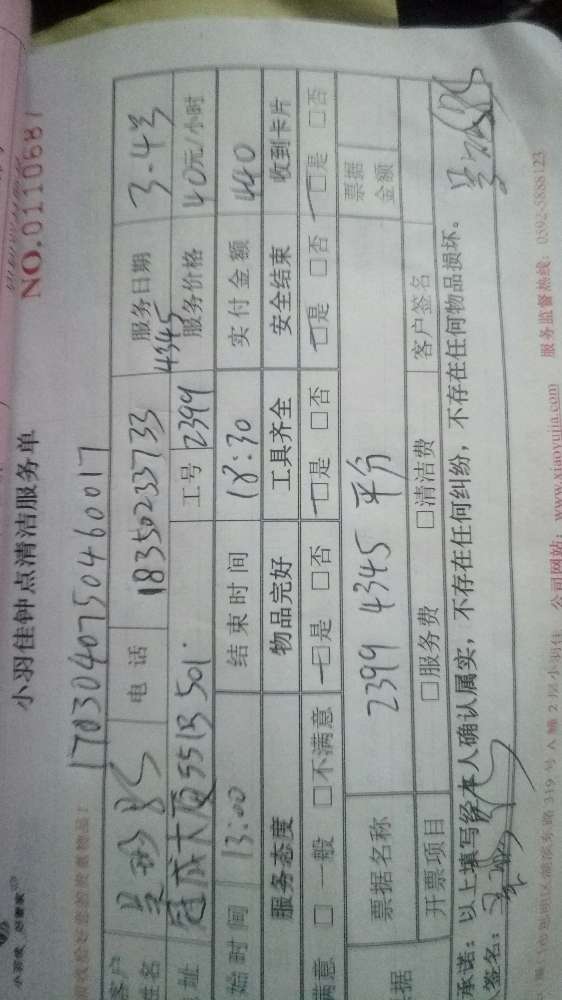 小羽佳钟点清洁服务单
NO.0110687
1703040750460017
客户姓名 电话 18350233733 服务日期 3.4号
址 冠成大厦 501 工号 2399 4345 服务价格 40元/小时
始时间 13:00 结束时间 18:30 实付金额 440
服务态度 物品完好 工具齐全 安全结束 收到卡片
满意 □ 一般 □不满意 □是 □否 □是 □否 □是 □否 □是 □否
据 票据名称 2399 4345 平分 票据金额
开票项目 □服务费 □清洁费 客户签名
承诺：以上填写经本人确认属实，不存在任何纠纷，不存在任何物品损坏。
签名：
公司网站：www.xiaoyujia.com 服务监督热线：0592-5888123